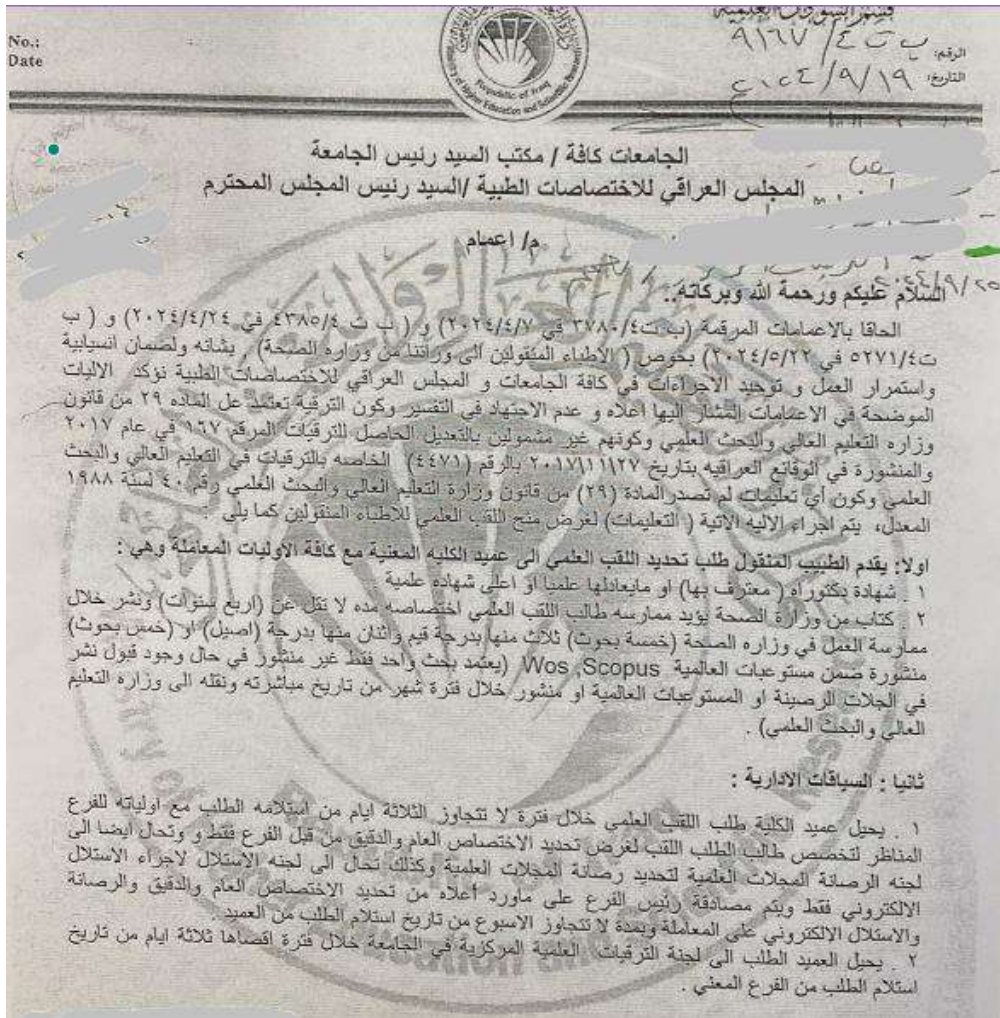 قسم الشؤون العلمية
No.:
Date
الرقم: ب ت ٤ / ٩١٦٧
التاريخ: ٢٠٢٤/٩/١٩
Republic of Iraq
الجامعات كافة / مكتب السيد رئيس الجامعة
المجلس العراقي للاختصاصات الطبية /السيد رئيس المجلس المحترم
م/ اعمام
٢٠٢٤/٩/٢٥
السلام عليكم ورحمة الله وبركاته..
الحاقا بالاعمامات المرقمة (ب ت٣٧٨٠/٤ في ٢٠٢٤/٤/٧) و ( ب ت ٤٣٨٥/٤ في ٢٠٢٤/٤/٢٤) و ( ب
ت٥٢٧١/٤ في ٢٠٢٤/٥/٢٢) بخوص ( الأطباء المنقولين الى وزراتنا من وزاره الصحة) , بشانه ولضمان انسيابية
واستمرار العمل و توحيد الاجراءات في كافة الجامعات و المجلس العراقي للاختصاصات الطبية نؤكد الاليات
الموضحة في الاعمامات المشار اليها اعلاه و عدم الاجتهاد في التفسير وكون الترقية تعتمد عل الماده ٢٩ من قانون
وزاره التعليم العالي والبحث العلمي وكونهم غير مشمولين بالتعديل الحاصل للترقيات المرقم ١٦٧ في عام ٢٠١٧
والمنشورة في الوقائع العراقيه بتاريخ ٢٠١٧\١١\٢٧ بالرقم (٤٤٧١) الخاصه بالترقيات في التعليم العالي والبحث
العلمي وكون أي تعليمات لم تصدرالمادة (٢٩) من قانون وزارة التعليم العالي والبحث العلمي رقم ٤٠ لسنة ١٩٨٨
المعدل، يتم اجراء الاليه الاتية ( التعليمات) لغرض منح اللقب العلمي للأطباء المنقولين كما يلي :
اولا: يقدم الطبيب المنقول طلب تحديد اللقب العلمي الى عميد الكليه المعنية مع كافة الاوليات المعاملة وهي :
١ . شهادة دكتوراه ( معترف بها) او مايعادلها علميا او اعلى شهاده علمية .
٢ . كتاب من وزارة الصحة يؤيد ممارسه طالب اللقب العلمي اختصاصه مده لا تقل عن (اربع سنوات) ونشر خلال
ممارسة العمل في وزاره الصحة (خمسة بحوث) ثلاث منها بدرجة قيم واثنان منها بدرجة (اصيل) او (خمس بحوث)
منشورة ضمن مستوعبات العالمية Wos ,Scopus (يعتمد بحث واحد فقط غير منشور في حال وجود قبول نشر
في الجلات الرصينة او المستوعبات العالمية او منشور خلال فترة شهر من تاريخ مباشرته ونقله الى وزاره التعليم
العالي والبحث العلمي) .
ثانيا : السياقات الادارية :
١ . يحيل عميد الكلية طلب اللقب العلمي خلال فترة لا تتجاوز الثلاثة ايام من استلامه الطلب مع اولياته للفرع
المناظر لتخصص طالب الطلب اللقب لغرض تحديد الاختصاص العام والدقيق من قبل الفرع فقط و وتحال ايضا الى
لجنه الرصانة المجلات العلمية لتحديد رصانة المجلات العلمية وكذلك تحال الى لجنه الاستلال لاجراء الاستلال
الالكتروني فقط ويتم مصادقة رئيس الفرع على ماورد أعلاه من تحديد الاختصاص العام والدقيق والرصانة
والاستلال الالكتروني على المعاملة وبمدة لا تتجاوز الاسبوع من تاريخ استلام الطلب من العميد .
٢ . يحيل العميد الطلب الى لجنة الترقيات العلمية المركزية في الجامعة خلال فترة اقصاها ثلاثة ايام من تاريخ
استلام الطلب من الفرع المعني .